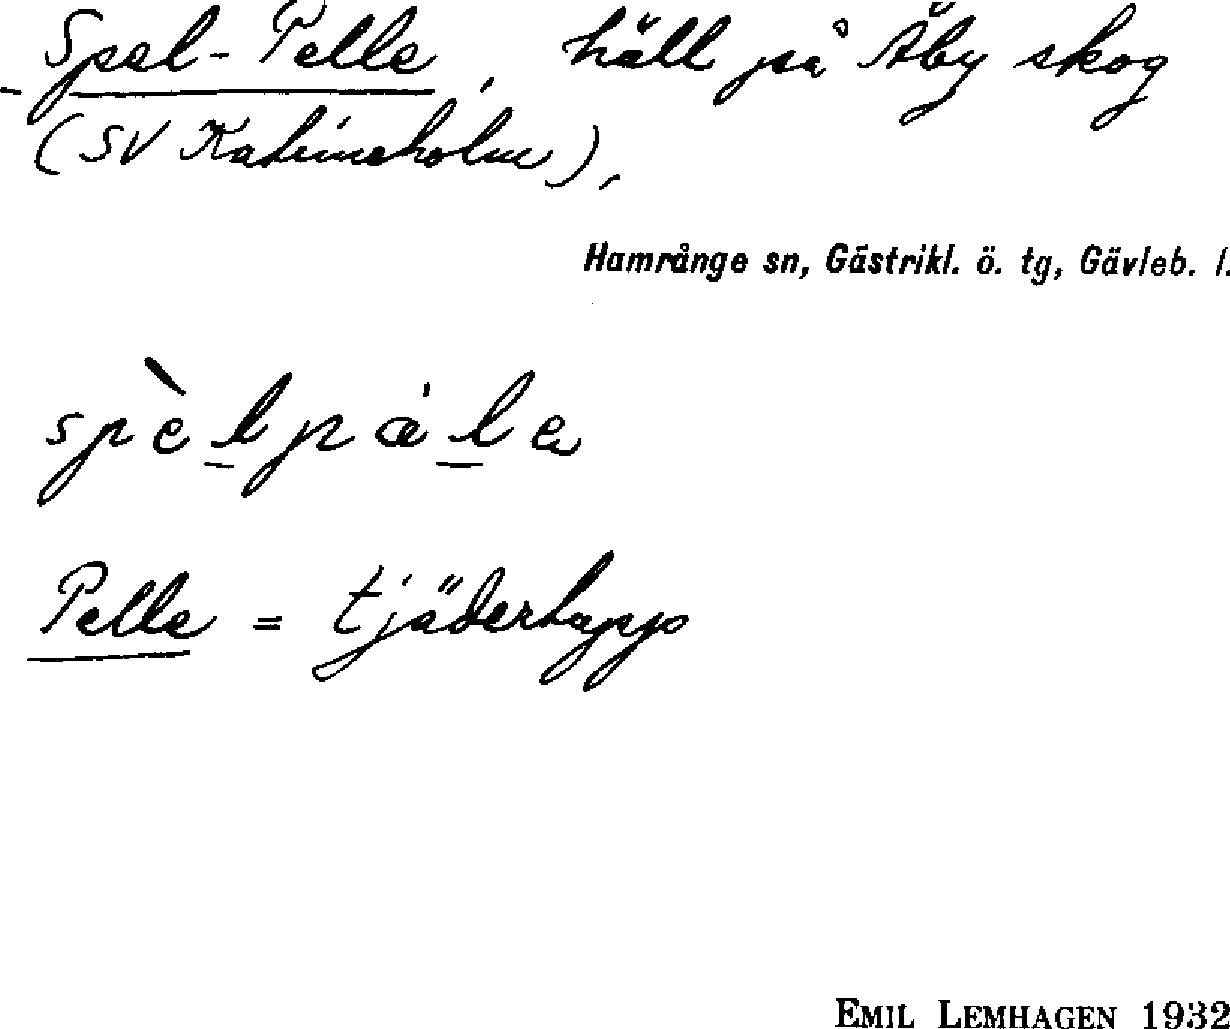 Spel-Pelle, häll på Åby skog
(SV Katrineholm),
Hamrånge sn, Gästrikl. ö. tg, Gävleb. l.
spèlpæ̀la
Pelle = tjädertupp
EMIL LEMHAGEN 1932